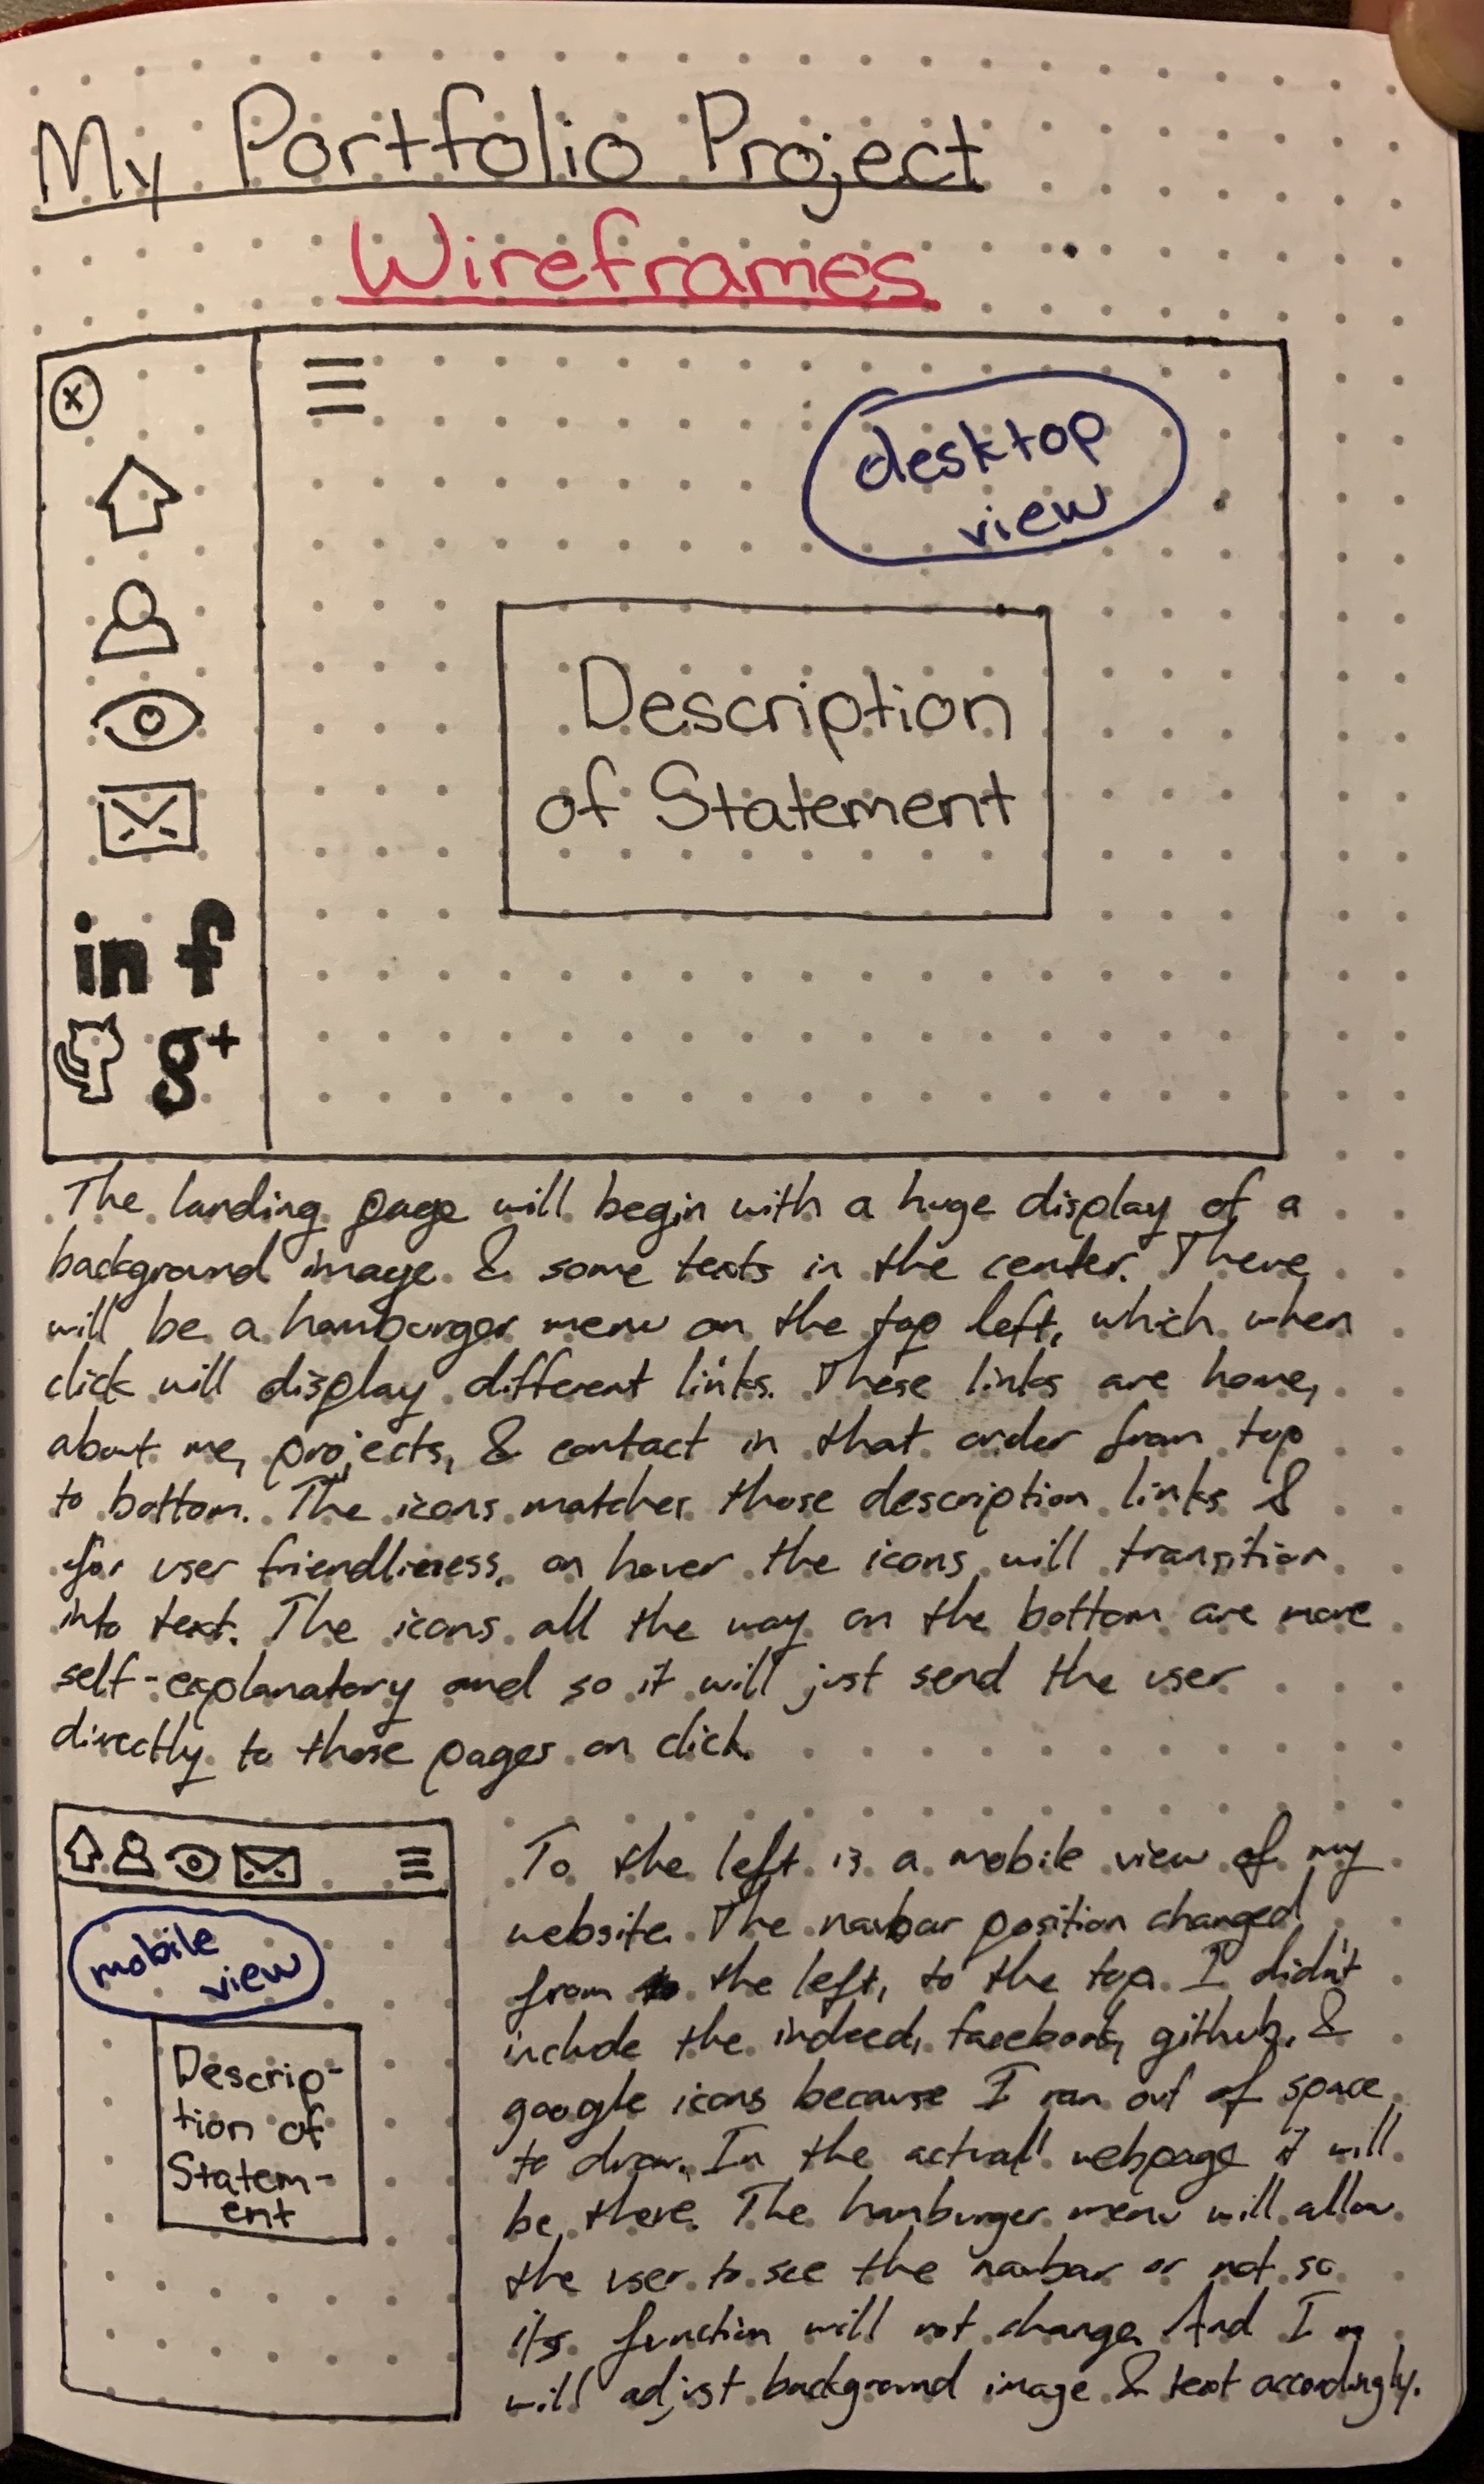 My Portfolio Project
Wireframes
desktop
view
Description
of Statement
in f
g+
The landing page will begin with a huge display of a
background image & some texts in the center. There
will be a hamburger menu on the top left, which when
click will display different links. These links are home,
about me, projects, & contact in that order from top
to bottom. The icons matches those description links &
for user friendliness, on hover the icons will transition
into text. The icons all the way on the bottom are more
self-explanatory and so it will just send the user
directly to those pages on click.
mobile
view
Descrip-
tion of
Statem-
ent
To the left is a mobile view of my
website. The navbar position changed
from the left, to the top. I didn't
include the indeed, facebook, github, &
google icons because I ran out of space
to draw. In the actual webpage it will
be there. The hamburger menu will allow
the user to see the navbar or not so
its function will not change. And I
will adjust background image & text accordingly.